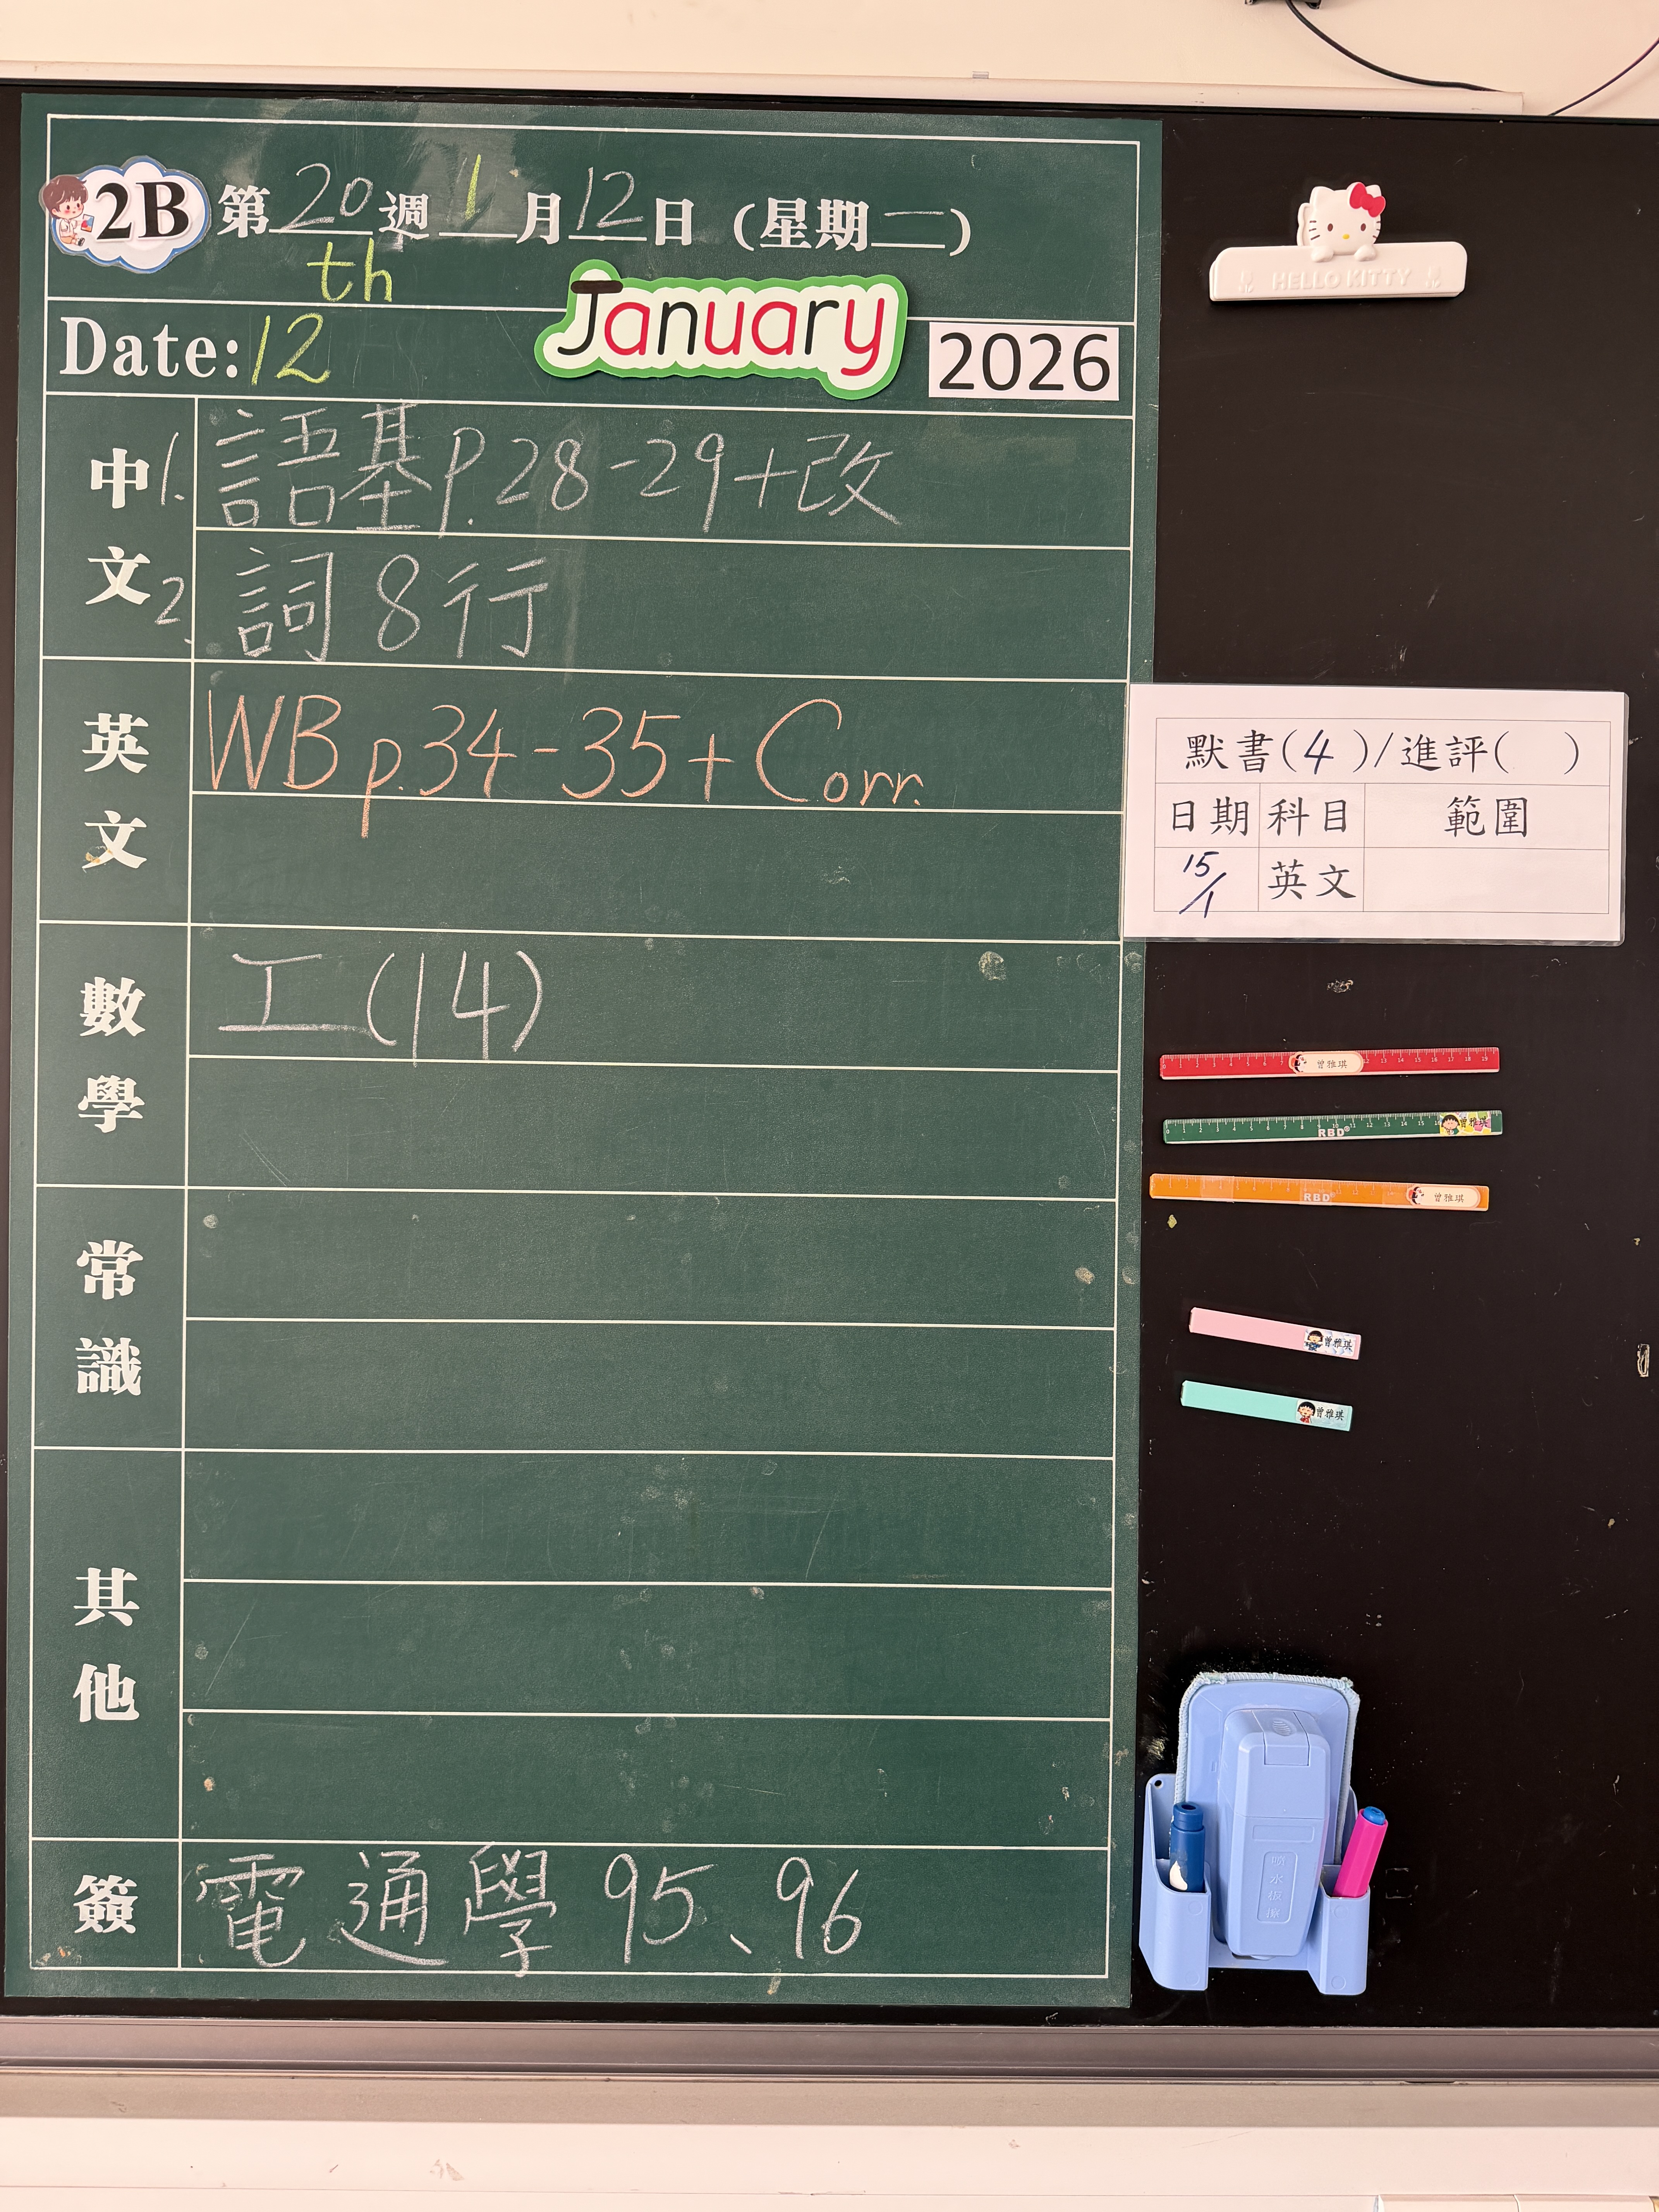 2B 第20週 1月12日 (星期一)
th
Date: 12 January 2026
中文
1. 語基p.28-29+改
2. 詞8行
英文
WB p.34-35+Corr.
數學
工(14)
常識
其他
簽
電通學95、96
HELLO KITTY
默書(4)/進評( )
日期 科目 範圍
15/1 英文
曾雅琪
RBD 曾雅琪
RBD 曾雅琪
曾雅琪
曾雅琪
噴水板擦